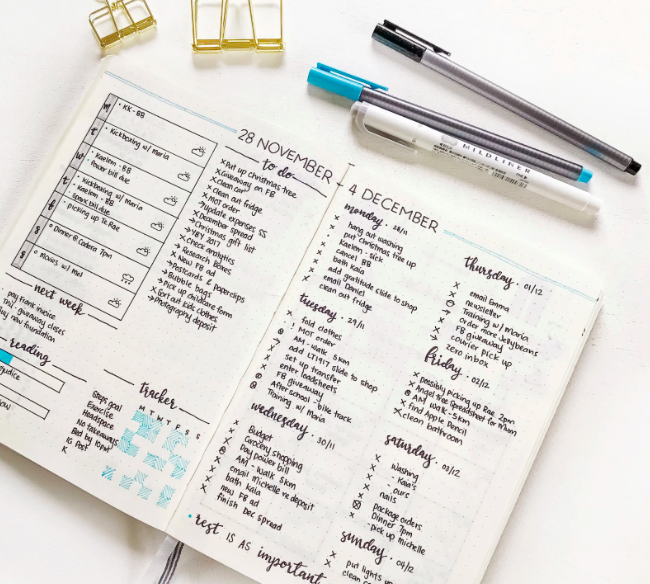 28 NOVEMBER
M
• KK - BB
T
• Kickboxing w/ Maria
W
• Kaelem - BB
• Power bill due
T
• Kickboxing w/ Maria
• Kaelem - BB
F
• picking up Te Rae
S
• Dinner @ Cadera 7pm
S
• Movies w/ Mel
next week
pay Frank invoice
giveaway closes
new foundation
reading
tracker
M T W T F S S
Steps goal
Exercise
Headspace
No takeaways
Bed by 10pm
IG Post
K
to do
× Put up christmas tree
× Giveaway on FB
× Clean out
× clean out fridge
× MOT order
→ Update expenses SS
× December spread
× Christmas gift list
→ YBY 2017
× Check analytics
→ Research Boxes
× New FB ad
→ Postcards & paperclips
→ Bubble bags
→ Pick up childcare form
× Sort out kids clothes
→ Photography deposit
— 4 DECEMBER
monday . 28/11
× hang out washing
× put christmas tree up
× Kaelem - sick
× cancel BB
× bath Kaia
× add gratitude slide to shop
× email Daniel
× clean out fridge
tuesday . 29/11
× fold clothes
! MOT order
AM - walk 5km
add LT1917 slide to shop
set up transfer
enter loadsheets
FB giveaway
After school - bike track
Training w/ Maria
wednesday . 30/11
× Budget
Grocery shopping
× Pay power bill
AM - walk 5km
× email michelle re deposit
× bath kaia
× new FB ad
× finish Dec spread
rest IS AS important
thursday . 01/12
× email Emma
newsletter
Training w/ Maria
→ order more Jellybeans
× FB giveaway
× courier pick up
→ zero inbox
friday . 02/12
× possibly picking up Rae 2pm
× Angel tree spreadsheet for Mum
AM walk 5km
× find Apple Pencil
× clean bathroom
saturday . 03/12
× washing
× - Kaia's
× - ours
× nails
package orders
Dinner 7pm
- pick up Michelle
sunday . 04/12
× put lights up
MILDLINER